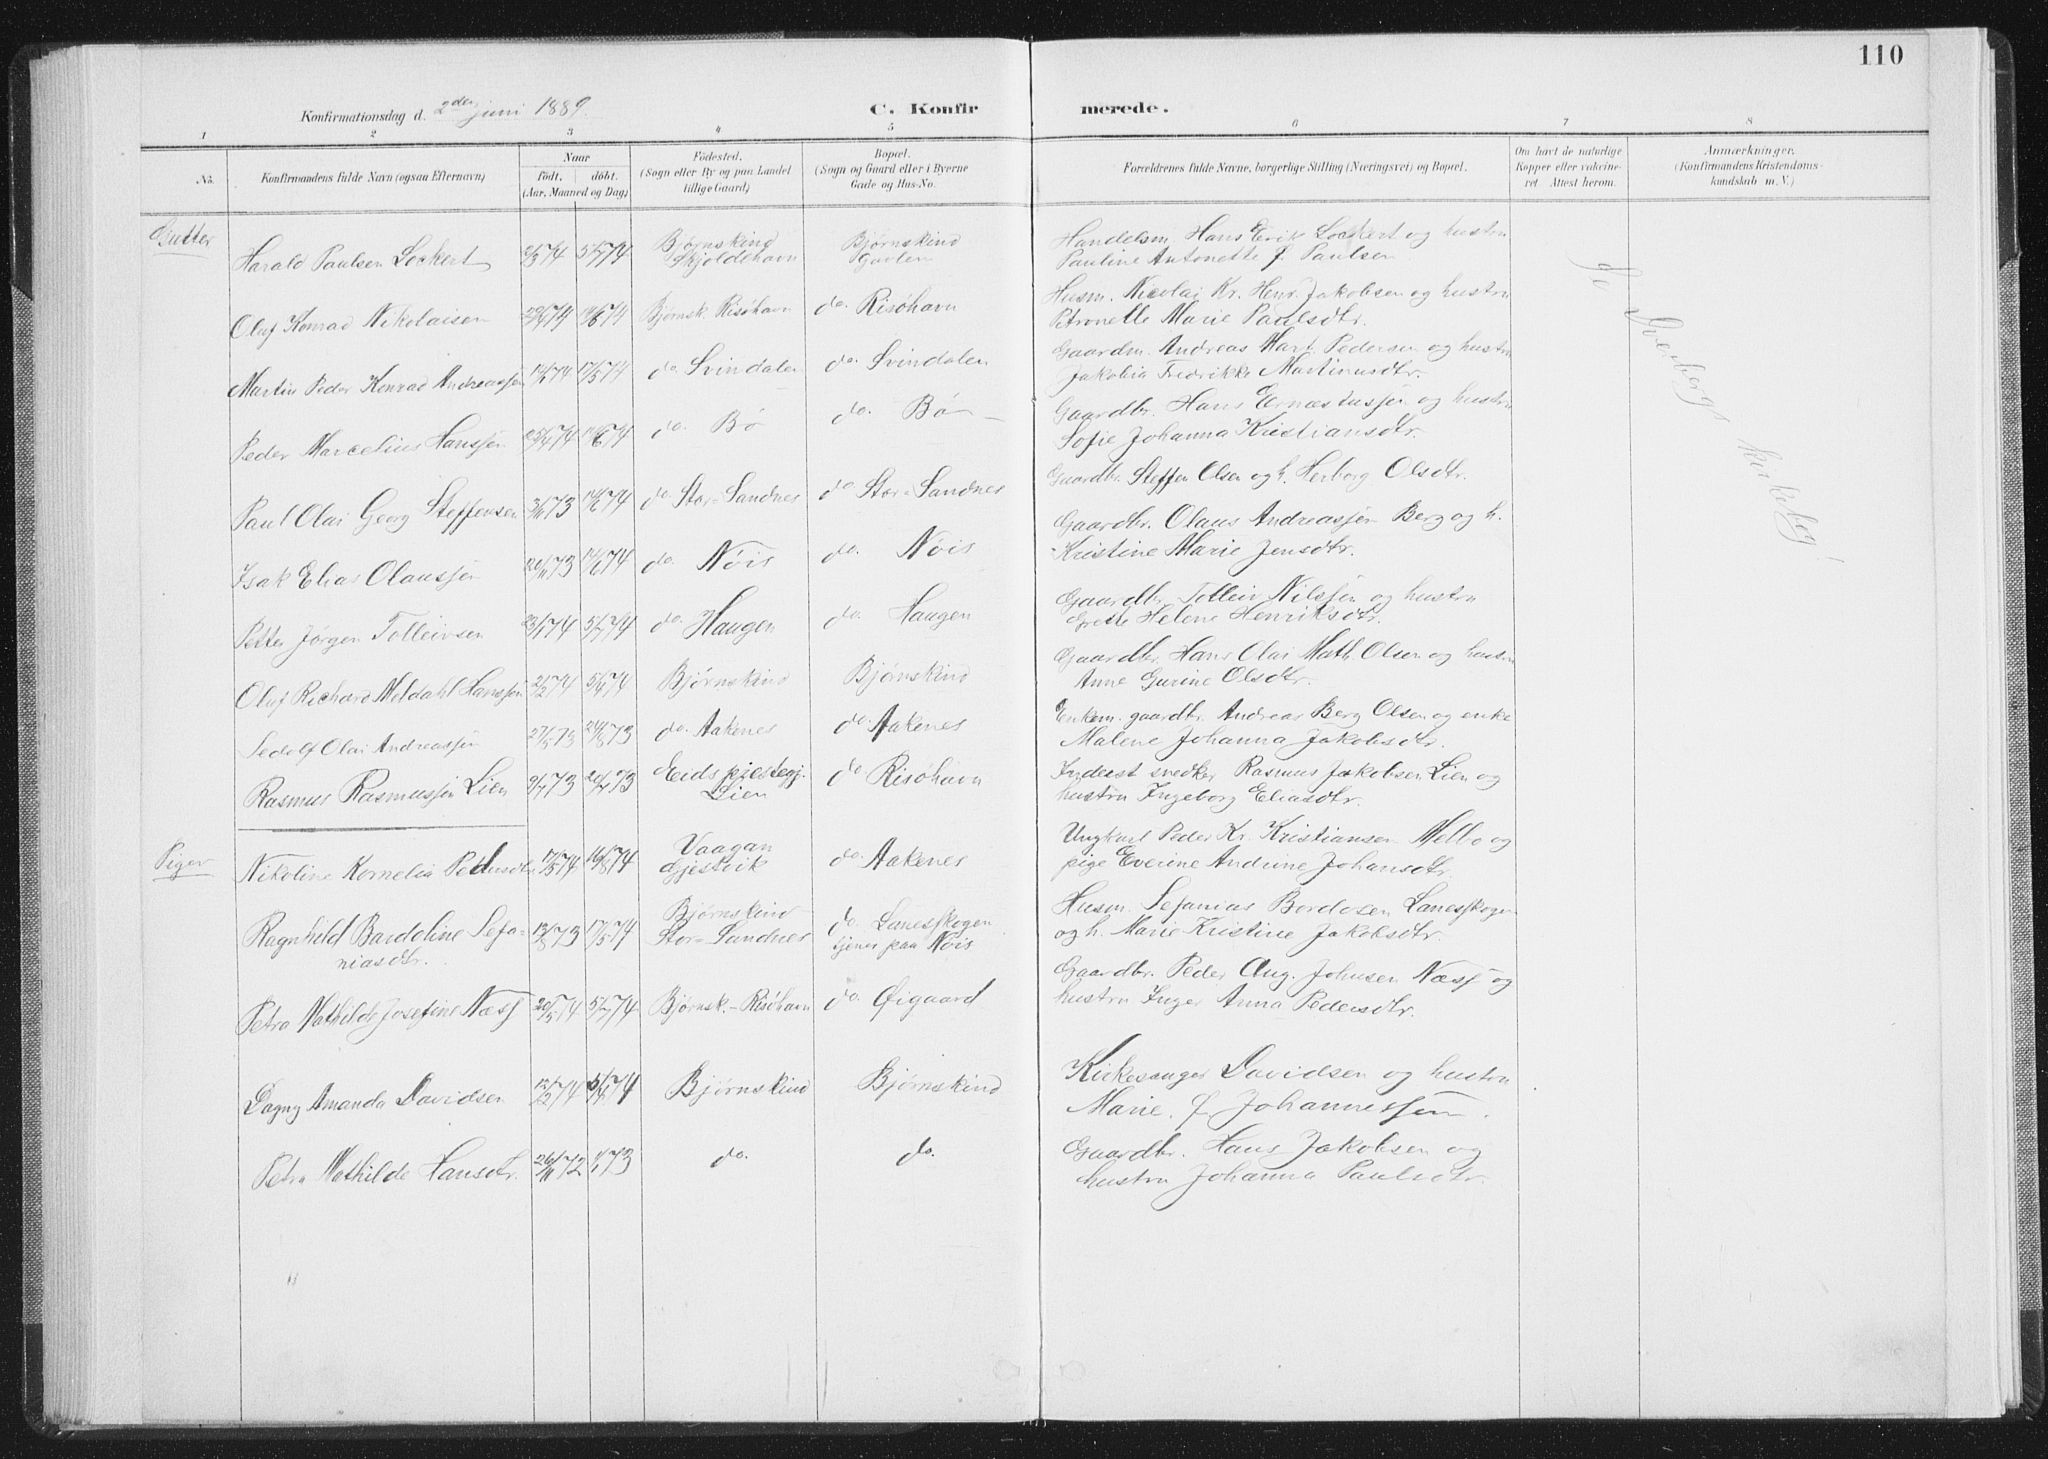 110
Konfirmationsdag d. 2den juni 1889.
C. Konfirmerede.
1 2 3 4 5 6 7 8
No.
Konfirmandens fulde Navn (ogsaa Efternavn)
Naar
født. døbt.
(Aar, Maaned og Dag)
Fødested.
(Sogn eller By og paa Landet
tillige Gaard)
Bopæl.
(Sogn og Gaard eller i Byerne
Gade og Hus-No.
Forældrenes fulde Navne, borgerlige Stilling (Næringsvei) og Bopæl.
Om havt de naturlige
Kopper eller vaksine-
ret Attest herom.
Anmærkninger.
(Konfirmandens Kristendoms-
kundskab m. V.)
Gutter
Harald Paulsen Lockert 74 74 Bjørnskind Skjoldehavn Bjørnskind Gavlen
Handelsm. Hans Erik Lockert og hustru
Pauline Antonette f. Paulsen
Oluf Konrad Nikolaisen 74 74 Bjørnsk. Risøhavn do. Risøhavn
Husm. Nicolai Kr. Henr. Jakobsen og hustru
Petronelle Marie Paulsdtr.
Martin Peder Konrad Andreassen 74 17/5 74 do. Svindalen do. Svindalen
Gaardm. Andreas Mart. Pedersen og hustru
Jakobia Fredrikke Martinusdtr.
Peder Marcelius Hanssen 25/4 74 74 do. Bø do. Bø
Gaardbr. Hans Ernæstussen og hustru
Sofie Johanna Kristiansdtr.
Paul Olai Georg Steffensen 3/11 73 74 do. Stor-Sandnes do. Stor-Sandnes
Gaardbr. Steffen Olsen og h. Herborg Olsdtr.
Isak Elias Olaussen 20/11 73 74 do. Nøis do. Nøis
Gaardbr. Olaus Andreassen Berg og h.
Kristine Marie Jensdtr.
Petter Jørgen Tolleivsen 23/1 74 5/7 74 do. Haugen do. Haugen
Gaardbr. Tolleiv Nilssen og hustru
Grette Helene Henriksdtr.
Oluf Richard Meldahl Hanssen 2/2 74 5/4 74 Bjørnskind Bjørnskind
Gaardbr. Hans Olai Math. Olsen og hustru
Anne Gurine Olsdtr.
Sedolf Olai Andreassen 27/5 73 73 do. Aakenes do. Aakenes
Enkem. gaardbr. Andreas Berg Olsen og enke
Malene Johanna Jakobsdtr.
Rasmus Rasmussen Lien 9/7 73 20/7 73 Eids prestegj. Lien do. Risøhavn
Inderst snedker Rasmus Jakobsen Lien og
hustru Ingeborg Eliasdtr.
Piger
Nikoline Kornelia Pedersdtr. 17/5 74 74 Vaagan Gjestvik do. Aakenes
Ungkarl Peder Kr. Kristiansen Melbo og
pige Everine Andrine Johansdtr.
Ragnhild Bardoline Sefa-
niasdtr. 73 17/5 74 Bjørnskind Stor-Sandnes do. Lanesskogen tjener paa Nøis
Husm. Sefanias Bordosen Lanesskogen
og h. Marie Kristine Jakobsdtr.
Petra Mathilde Josefine Næss 20/5 74 5/7 74 Bjørnsk.-Risøhavn do. Øigaard
Gaardbr. Peder Aug. Johnsen Næss og
hustru Inger Anna Pedersdtr.
Dagny Amanda Davidsen 12/2 74 74 Bjørnskind Bjørnskind
Kirkesanger Davidsen og hustru
Marie f. Johannessen.
Petra Mathilde Hansdtr. 26/11 72 73 do. do.
Gaardbr. Hans Jakobsen og
hustru Johanna Paulsdtr.